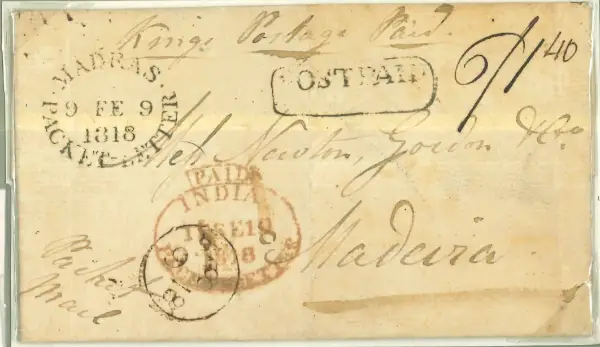 Kings Postage Paid.
MADRAS.
9 FE 9
1818
PACKET LETTER
POST PAID
6/1 40
Newton, Gordon & Co
Madeira
PAID
INDIA
1818
PACKET LETTER
Packet
Mail